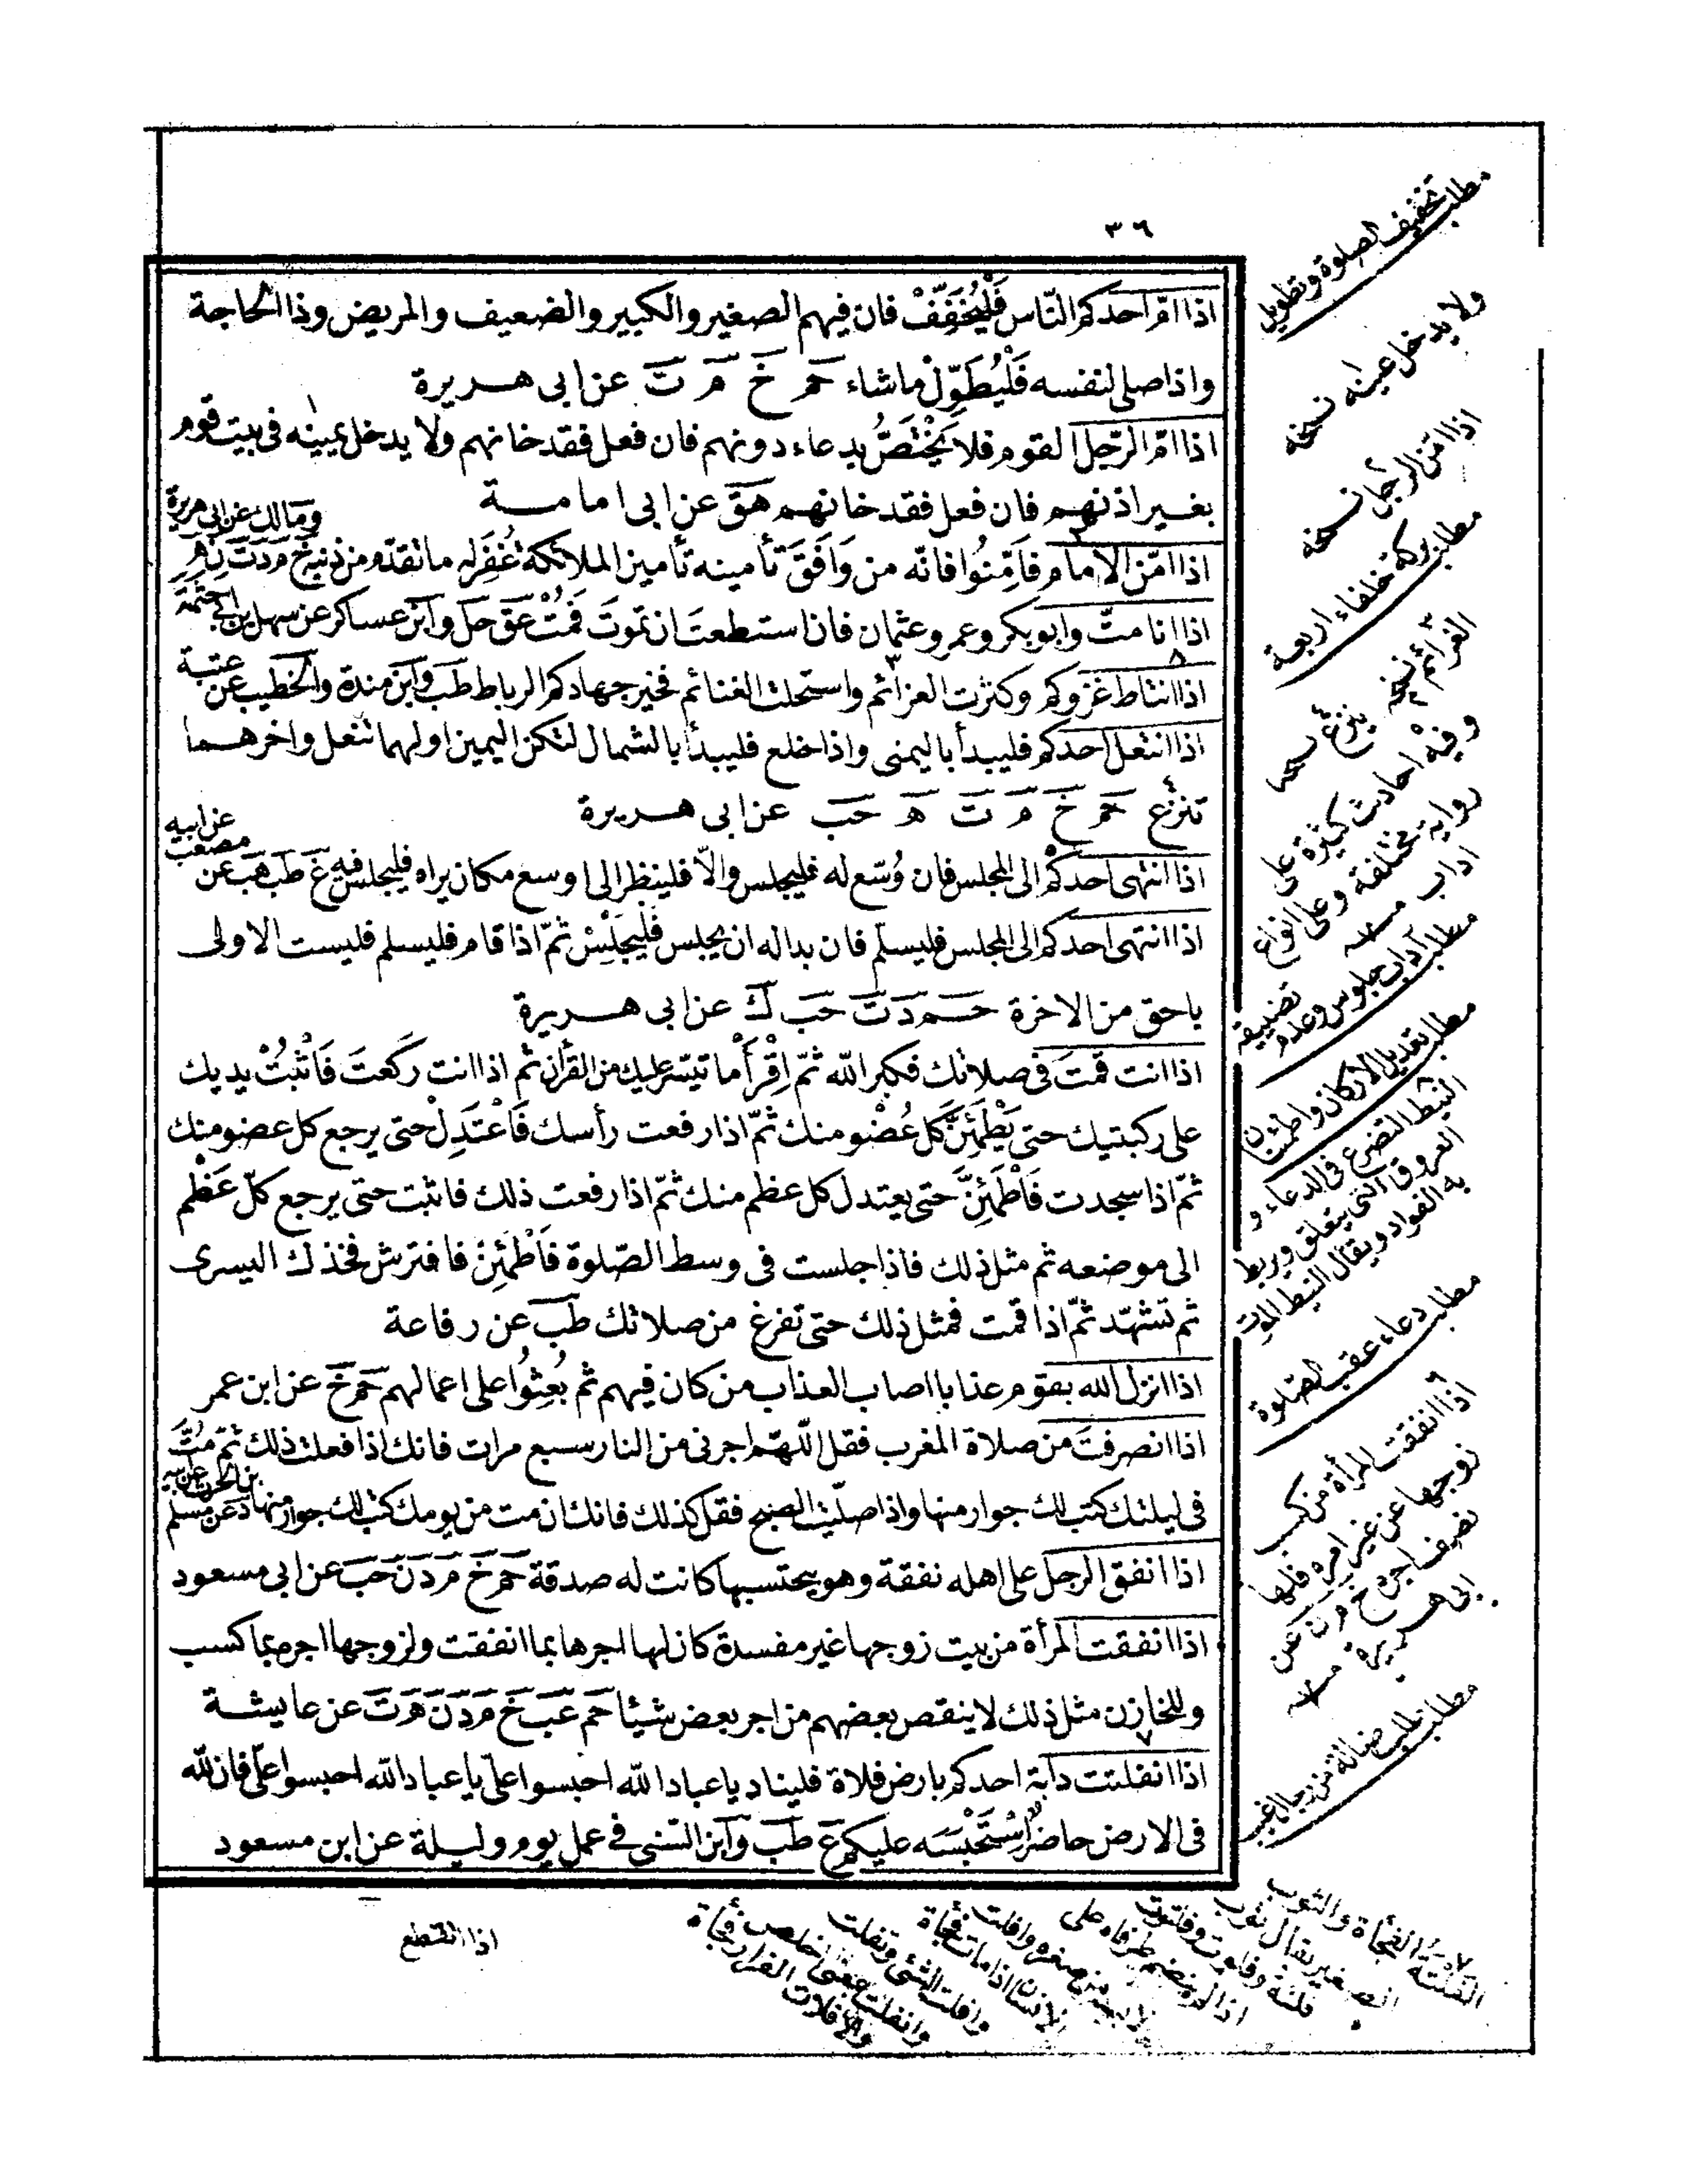 ٣٦
اذا امّ احدكم النّاس فَلْيُخَفِّفْ فان فيهم الصغير والكبير والضعيف والمريض وذا الحاجة
واذا صلى لنفسه فَلْيُطَوِّلْ ماشاء حم خ م ت عن ابى هريرة
اذا امّ الرّجل القوم فلا يَخْتَصُّ بدعاء دونهم فان فعل فقد خانهم ولا يدخل عينه فى بيت قوم
بغير اذنهم فان فعل فقد خانهم هق عن ابى امامة
اذا امّن الامام فَاَمِّنُوا فانّه من وَافَقَ تأمينه تأمين الملائكة غُفِرَ له ما تقدّم من ذنبه خ م د ت ن ه
ومالك عن ابى هريرة
اذا انا متّ وابوبكر وعمر وعثمان فان استطعتَ ان تموتَ فَمُتْ عق حل وابن عساكر عن سهل بن ابى حثمة
اذا انتاط غَزْوكم وكثرت العزائم واستحلت الغنائم فخير جهادكم الرباط طب وابن مندة والخطيب عن عتبة
اذا انتعل احدكم فليبدأ باليمنى واذا خلع فليبدأ بالشمال لتكن اليمين اولهما تنعل واخرهما
تنزع حم خ م د ت ه حب عن ابى هريرة
اذا انتهى احدكم الى المجلس فان وُسّع له فليجلس والاّ فلينظر الى اوسع مكان يراه فليجلس فيه غ طب هب عن
مصعب عن ابيه
اذا انتهى احدكم الى المجلس فليسلّم فان بداله ان يجلس فَلْيَجْلِسْ ثمّ اذا قام فليسلم فليست الاولى
باحق من الاخرة حم د ت حب ك عن ابى هريرة
اذا انت قمتَ فى صلاتك فكبر الله ثمّ اِقْرَأْ ما تيسّر عليك من القرأن ثم اذا انت رَكَعتَ فَاَثْبُتْ يديك
على ركبتيك حتى يَطْمَئِنَّ كل عُضْو منك ثمّ اذا رفعت رأسك فَاعْتَدِلْ حتى يرجع كل عضو منك
ثمّ اذا سجدت فَاطْمَئِنَّ حتى يعتدل كل عظم منك ثمّ اذا رفعت ذلك فاثبت حتى يرجع كلّ عَظْم
الى موضعه ثم مثل ذلك فاذا جلست فى وسط الصّلوة فَاطْمَئِنْ فافترش فخذك اليسرى
ثم تشهّد ثمّ اذا قمت فمثل ذلك حتى تفرغ من صلاتك طب عن رفاعة
اذا انزل الله بقوم عذابا اصاب العذاب من كان فيهم ثم بُعِثُوا على اعمالهم حم خ عن ابن عمر
اذا انصرفتَ من صلاة المغرب فقل اللّهمّ اجرنى من النار سبع مرات فانك اذا فعلت ذلك ثمّ مُتَّ
فى ليلتك كتب لك جوار منها واذا صلّيت الصبح فقل كذلك فانك ان مت من يومك كتب لك جوار منها د عن مسلم
بن الحرث عن ابيه
اذا انفق الرجل على اهله نفقة وهو يحتسبها كانت له صدقة حم خ م د ن حب عن ابى مسعود
اذا انفقت المرأة من بيت زوجها غير مفسدة كان لها اجرها بما انفقت ولزوجها اجره بما كسب
وللخازن مثل ذلك لا ينقص بعضهم من اجر بعض شيئا حم عب خ م د ن ه ت عن عايشة
اذا انفلتت دابة احدكم بارض فلاة فليناد ياعباد الله احبسوا علىّ ياعباد الله احبسوا علىّ فان لله
فى الارض حاضرا سَتَحْبِسَه عليكم ع طب وابن السّنى فى عمل يوم وليلة عن ابن مسعود
مطلب تخفيف الصلوة وتطويل
ولا يدخل عينه نسخه
اذا امّن الرجل نسخه
مطلب بركة خلفاء اربعة
الغرائم نسخه
ينزع نسخه
وفيه احاديث كثيرة على
رواية مختلفة وعلى انواع
اداب
مطلب آداب جلوس وعدم
تضييقه
مطلب تعديل الاركان واطمئنان
النيط التضرع فى الدعاء و
العروق التى يتعلق وربط
به الفواد ويقال النيط الموت
مطلب دعاء عقب الصلوة
اذا انفقت المرأة من كسب
زوجها عن غير امره فلها
نصف اجره خ م د عن
ابى هريرة
مطلب طلب ضالة من رجال الغيب
الفلتة الفجأة والثوب
الصغير يقال ثوب
وافلت الشئ وتفلت
وانفلت بمعنى
اذا انقطع